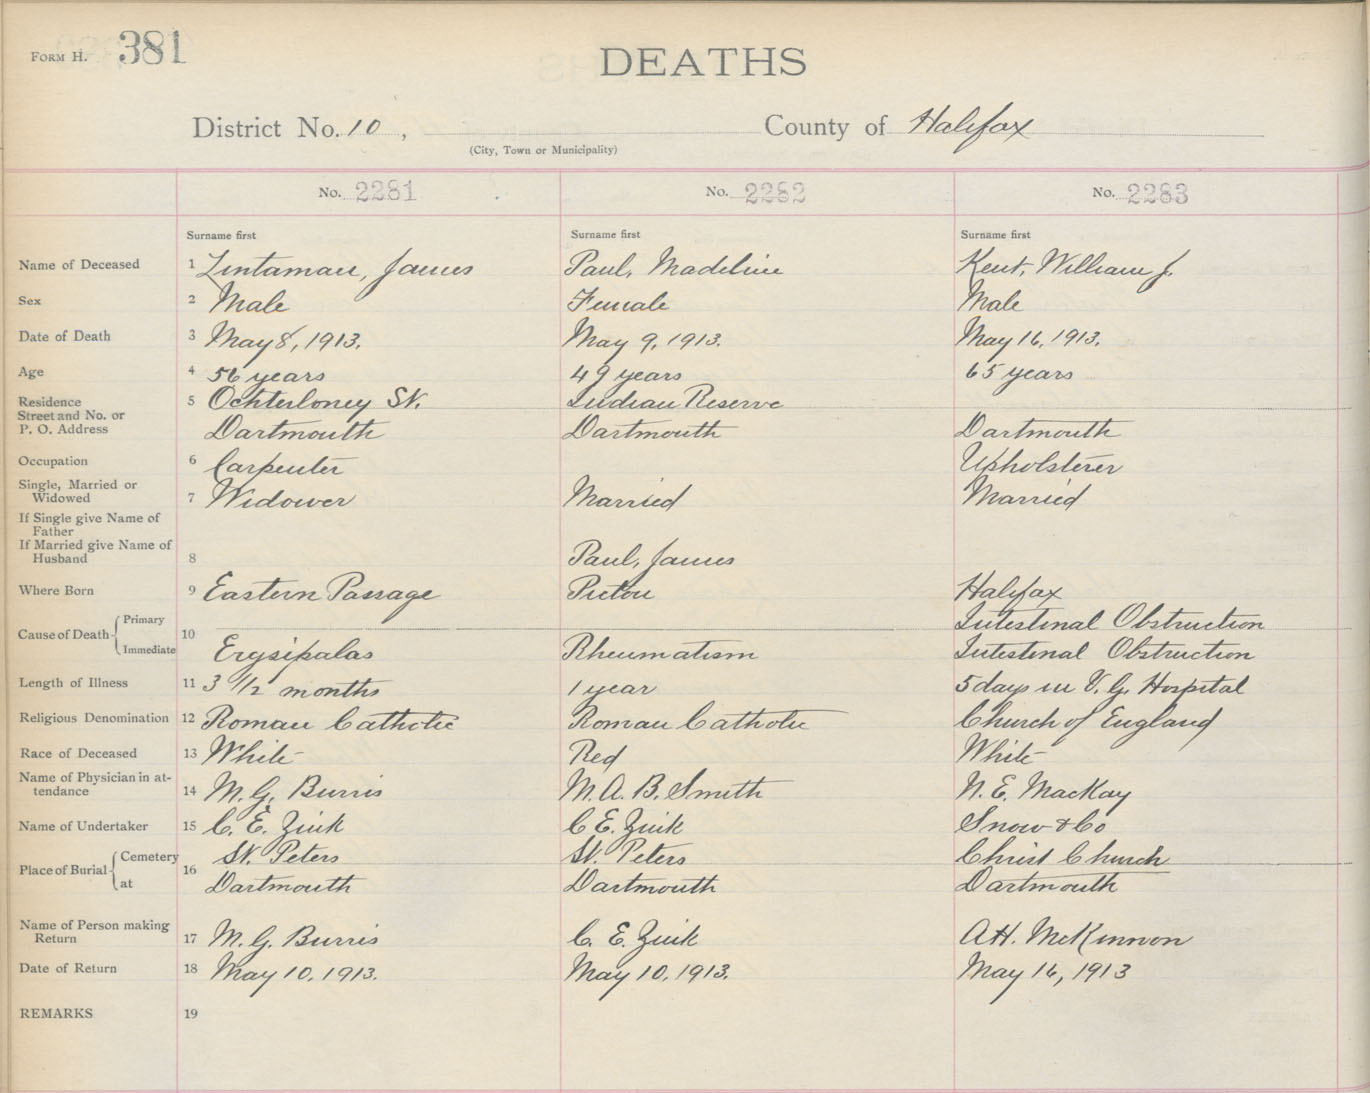 FORM H. 381
DEATHS
District No. 10, County of Halifax
(City, Town or Municipality)
No. 2281 No. 2282 No. 2283
Surname first Surname first Surname first
Name of Deceased 1 Zintaman, James Paul, Madeline Kent, William J.
Sex 2 Male Female Male
Date of Death 3 May 8, 1913. May 9, 1913. May 16, 1913.
Age 4 56 years 49 years 65 years
Residence 5 Ochterloney St. Indian Reserve
Street and No. or
P. O. Address Dartmouth Dartmouth Dartmouth
Occupation 6 Carpenter Upholsterer
Single, Married or
Widowed 7 Widower Married Married
If Single give Name of
Father
If Married give Name of
Husband 8 Paul, James
Where Born 9 Eastern Passage Pictou Halifax
Cause of Death Primary 10 Intestinal Obstruction
Immediate Erysipalas Rheumatism Intestinal Obstruction
Length of Illness 11 3 1/2 months 1 year 5 days in V. G. Hospital
Religious Denomination 12 Roman Catholic Roman Catholic Church of England
Race of Deceased 13 White Red White
Name of Physician in at-
tendance 14 M. G. Burris M. A. B. Smith N. E. MacKay
Name of Undertaker 15 C. E. Zink C E. Zink Snow & Co
Place of Burial Cemetery 16 St. Peters St. Peters Christ Church
at Dartmouth Dartmouth Dartmouth
Name of Person making
Return 17 M. G. Burris C. E. Zink A H. McKinnon
Date of Return 18 May 10, 1913. May 10, 1913. May 16, 1913
REMARKS 19